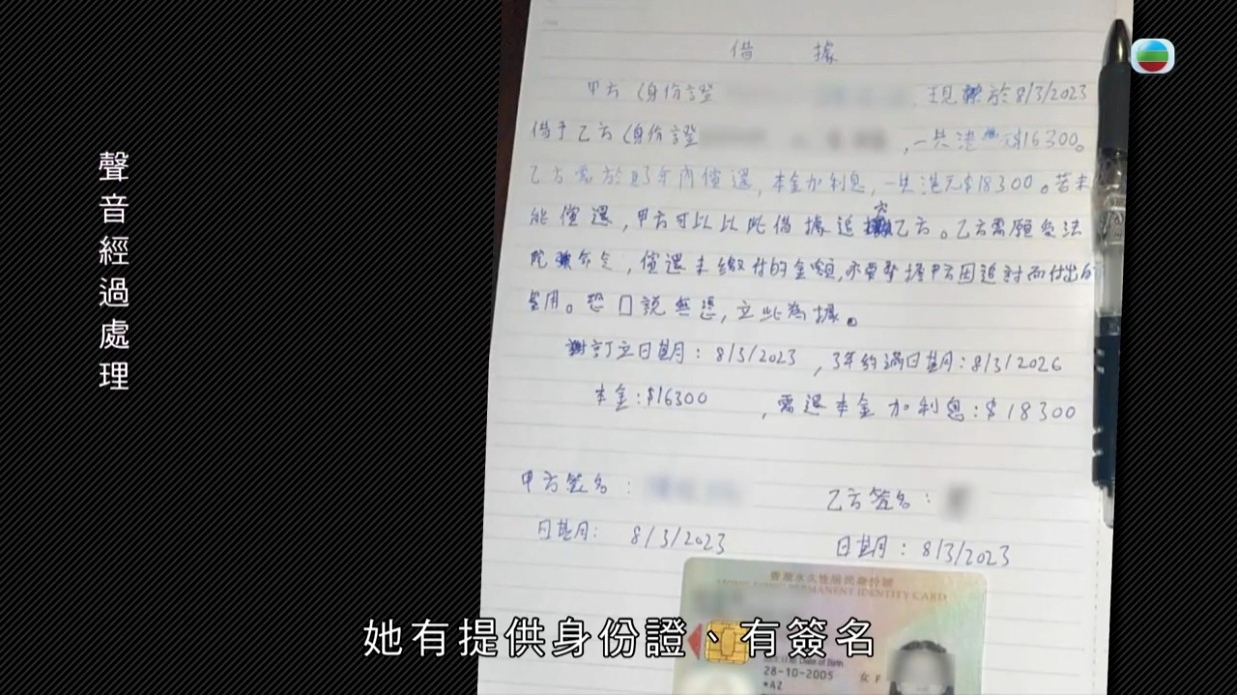 借 據
甲方(身份證 現於8/3/2023
借予乙方(身份證 ,一共港元$16300。
乙方需於3年內償還,本金加利息,一共港元$18300。若未
能償還,甲方可以以此借據追究乙方。乙方需願受法
院命令,償還未繳付的金額,亦要承擔甲方因追討而付出的
費用。恐口說無憑,立此為據。
訂立日期:8/3/2023 ,3年約滿日期:8/3/2026
本金:$16300 ,需還本金加利息:$18300
甲方簽名: 乙方簽名:
日期: 8/3/2023 日期:8/3/2023
香港永久性居民身份證
PERMANENT IDENTITY CARD
Date of Birth
28-10-2005 女 F
*A2
聲音經過處理
她有提供身份證、有簽名